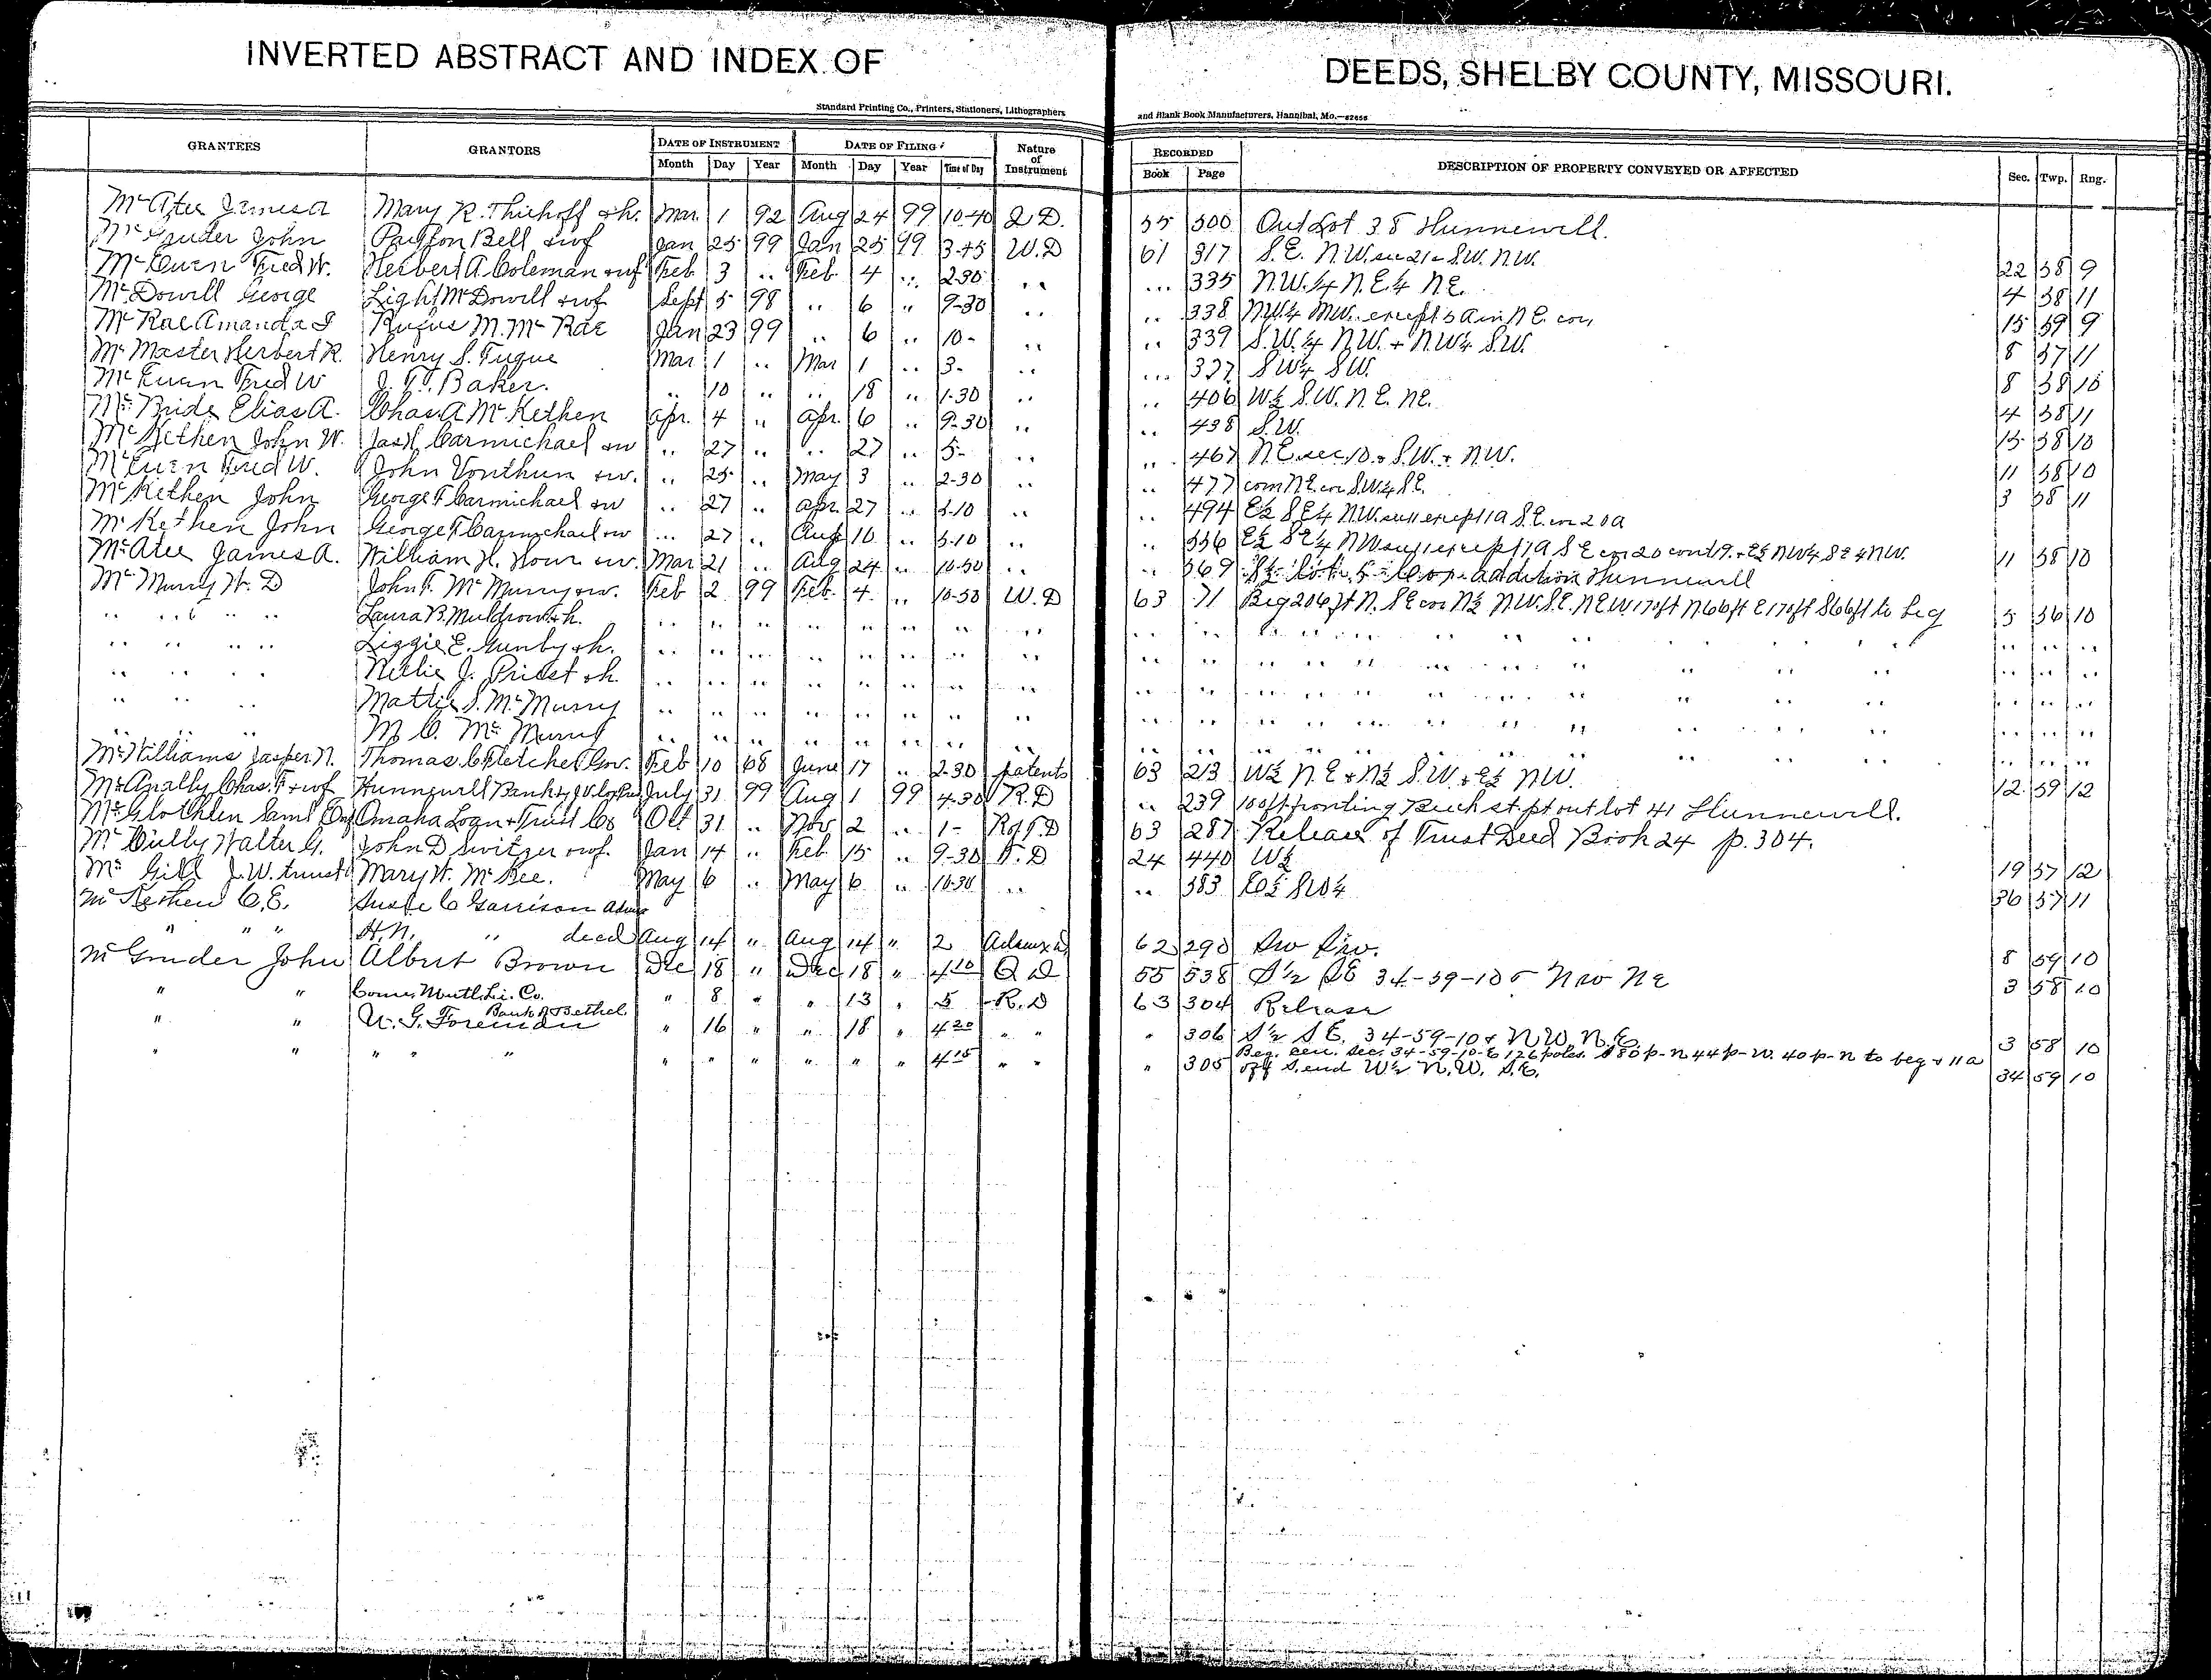 INVERTED ABSTRACT AND INDEX OF DEEDS, SHELBY COUNTY, MISSOURI.
Standard Printing Co., Printers, Stationers, Lithographers and Blank Book Manufacturers, Hannibal, Mo.—82656
GRANTEES GRANTORS DATE OF INSTRUMENT DATE OF FILING Nature of Instrument RECORDED DESCRIPTION OF PROPERTY CONVEYED OR AFFECTED Sec. Twp. Rng.
Month Day Year Month Day Year Time of Day Book Page
McAtee James A Mary R. Thiehoff &h. Mar. 1 92 Aug 24 99 10-40 Q D. 55 500 Out Lot 38 Hunnewell.
McGruder John Bell &wf Jan 25 99 Jan 25 99 3-45 W.D 61 317 S.E. N.W. sec 21 & S.W. N.W. 22 58 9
McEuen Fred W. Herbert A. Coleman &wf Feb 3 .. Feb. 4 .. 2-30 .. .. 335 N.W.¼ N.E.¼ N.E. 4 58 11
McDowill George Light McDowill &wf Sept 5 98 .. 6 .. 9-30 .. .. 338 N.W.¼ N.W. except 5 a in N.E. cor, 15 59 9
McRae Amanda J Rufus M. McRae Jan 23 99 .. 6 .. 10- .. .. 339 S.W.¼ N.W. + N.W¼ S.W. 8 57 11
McMaster Herbert R. Henry S. Fuque Mar 1 .. Mar 1 .. 3- .. .. 337 SW¼ SW. 8 58 10
McEuen Fred W J. Baker. .. 10 .. .. 18 .. 1-30 .. .. 406 W½ S.W. N.E. NE. 4 58 11
McBride Elias A. Chas. A McKethen Apr. 4 .. Apr. 6 .. 9-30 .. .. 438 S.W. 15 58 10
McKethen John W. Jas H. Carmichael &w .. 27 .. .. 27 .. 5- .. .. 467 N.E. sec. 10 & S.W. & N.W. 11 58 10
McEuen Fred W. John Vonthun &w. .. 25 .. May 3 .. 2-30 .. .. 477 com N.E. cor S.W.¼ S.E. 3 58 11
McKethen John George F Carmichael &w .. 27 .. Apr. 27 .. 5-10 .. .. 494 E½ SE¼ N.W. sec 11 except 1 a S.E. cor 20 a
McKethen John George F Carmichael &w .. 27 .. Aug 10 .. 5-10 .. .. 556 E½ SE¼ NW sec 11 except 1 a SE cor 20 & E½ NW¼ SE¼ NW. 11 58 10
McAtee James A. William H. &w. Mar 21 .. Aug 24 .. 10-50 .. .. 569 addition Hunnewell
McMurry W. D John F. McMurry &w. Feb 2 99 Feb. 4 .. 10-50 W.D 63 71 Beg 206 ft N. SE cor N½ N.W. S.E. N.E W 170 ft N 66 ft E 170 ft S 66 ft to beg 5 56 10
.. .. .. Laura B. Muldrow &h. .. .. .. .. .. .. .. .. .. .. .. .. .. ..
.. .. .. Lizzie E. Gunby &h. .. .. .. .. .. .. .. .. .. .. .. .. .. ..
.. .. .. Nellie J. Priest &h. .. .. .. .. .. .. .. .. .. .. .. .. .. ..
.. .. .. Mattie S. McMurry .. .. .. .. .. .. .. .. .. .. .. .. .. ..
.. .. .. M. C. McMurry .. .. .. .. .. .. .. .. .. .. .. .. .. ..
McWilliams Jasper N. Thomas C Fletcher Gov. Feb 10 68 June 17 .. 2-30 patents 63 213 W½ N.E & N½ S.W. & E½ NW. 12 59 12
McAnally Chas. F &wf Hunnewell Bank July 31 99 Aug 1 99 4-30 R.D .. 239 100 ft fronting Beech st. pt out lot 41 Hunnewell.
McGlothlen Saml Omaha Loan & Trust Co Oct 31 .. Nov 2 .. 1- R of T.D 63 287 Release of Trust Deed Book 24 p. 304.
McCully Walter G. John D Switzer &wf. Jan 14 .. Feb. 15 .. 9-30 T.D 24 440 W½ 19 57 12
McGill J.W. trust Mary W. McBee. May 6 .. May 6 .. 10-30 .. .. 583 E½ SW¼ 36 57 11
McKethen C.E. Susie C Garrison Admx
" " " H.N. " decd Aug 14 " Aug 14 " 2 Admx D 62 290 Sw Sw. 8 59 10
McGruder John Albert Brown Dec 18 " Dec 18 " 4 10 Q D 55 538 S½ SE 34-59-10 & NW NE 3 58 10
" " Conn. Mutl. Li. Co. " 8 " " 13 " 5 R. D 63 304 Release
" " Bank of Bethel. U. G. Foreman " 16 " " 18 " 4 20 " " " 306 S½ S.E. 34-59-10 & N.W. N.E. 3 58 10
" " " " " " " " " " " 4 15 " " " 305 Beg. cen. Sec. 34-59-10-E 126 poles. S 80 p-N 44 p-W. 40 p-N to beg & 11 a off S. end W½ N.W. S.E. 34 59 10